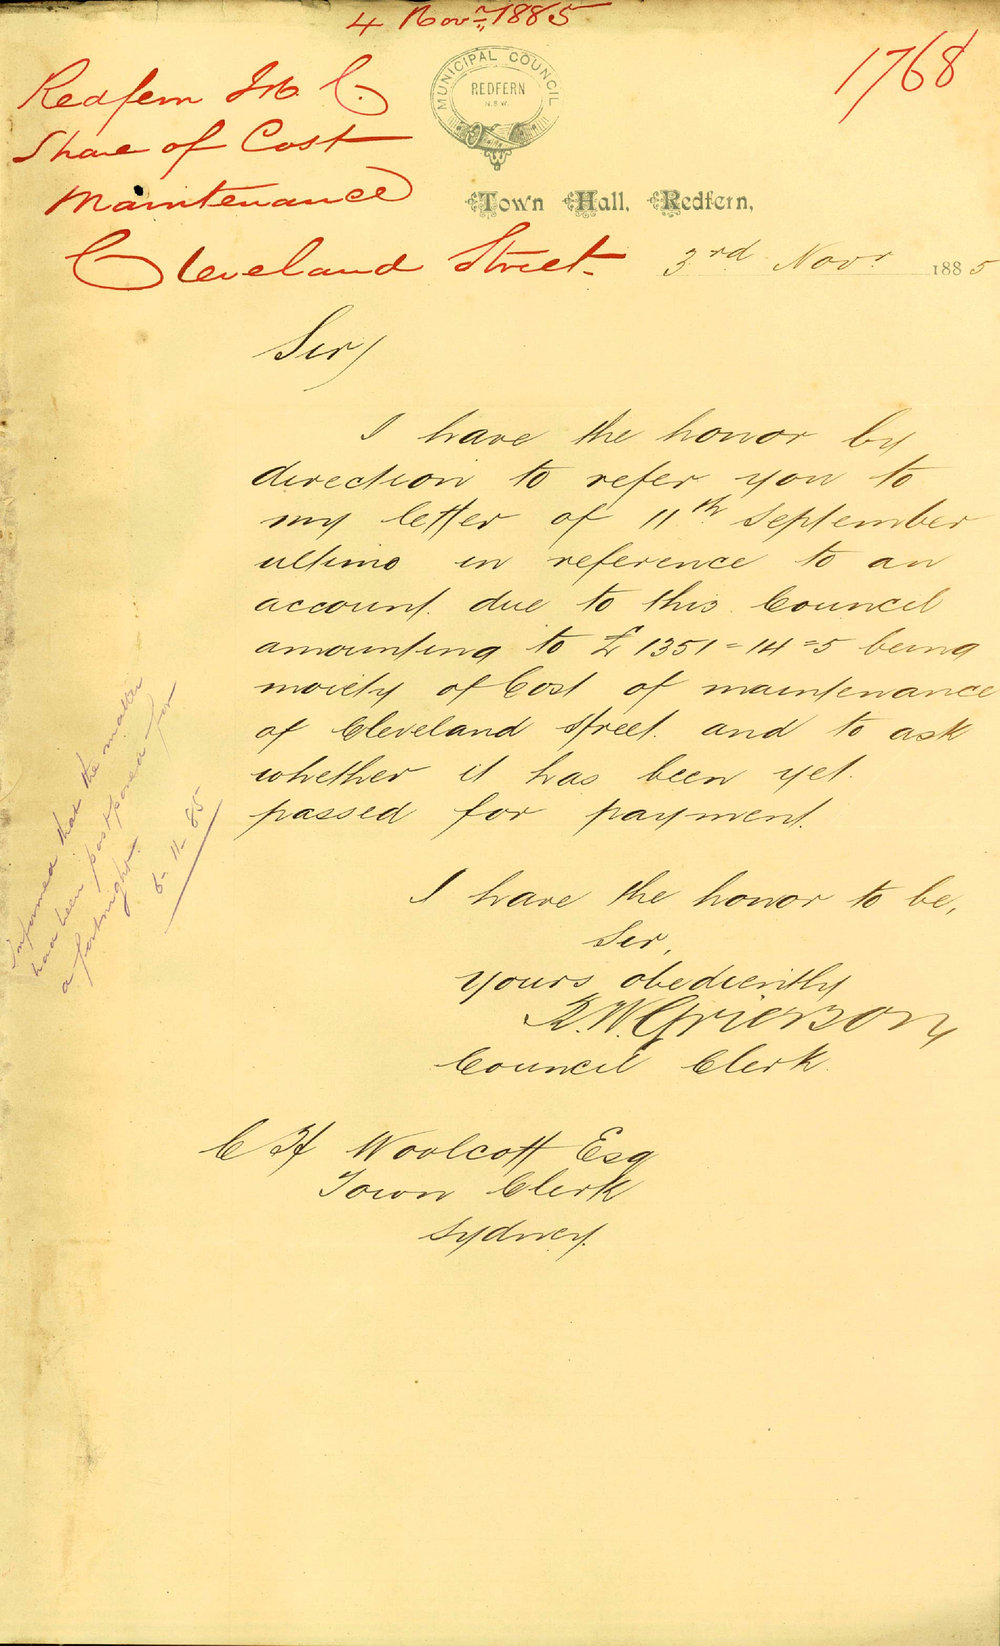 4 Novr. 1885
1768
Redfern M. C.
Share of Cost
Maintenance
Cleveland Street.
MUNICIPAL COUNCIL
REDFERN
N.S.W.
Town Hall, Redfern,
3rd Novr 1885
Sir/
I have the honor by
direction to refer you to
my letter of 11th September
ultimo in reference to an
account due to this Council
amounting to £1351=14=5 being
moiety of Cost of maintenance
of Cleveland Street. and to ask
whether it has been yet
passed for payment.
I have the honor to be,
Sir,
yours obediently
Grierson
Council Clerk.
C H Woolcott Esq
Town Clerk
Sydney.
Informed that the matter
had been postponed for
a fortnight.
6-11-85